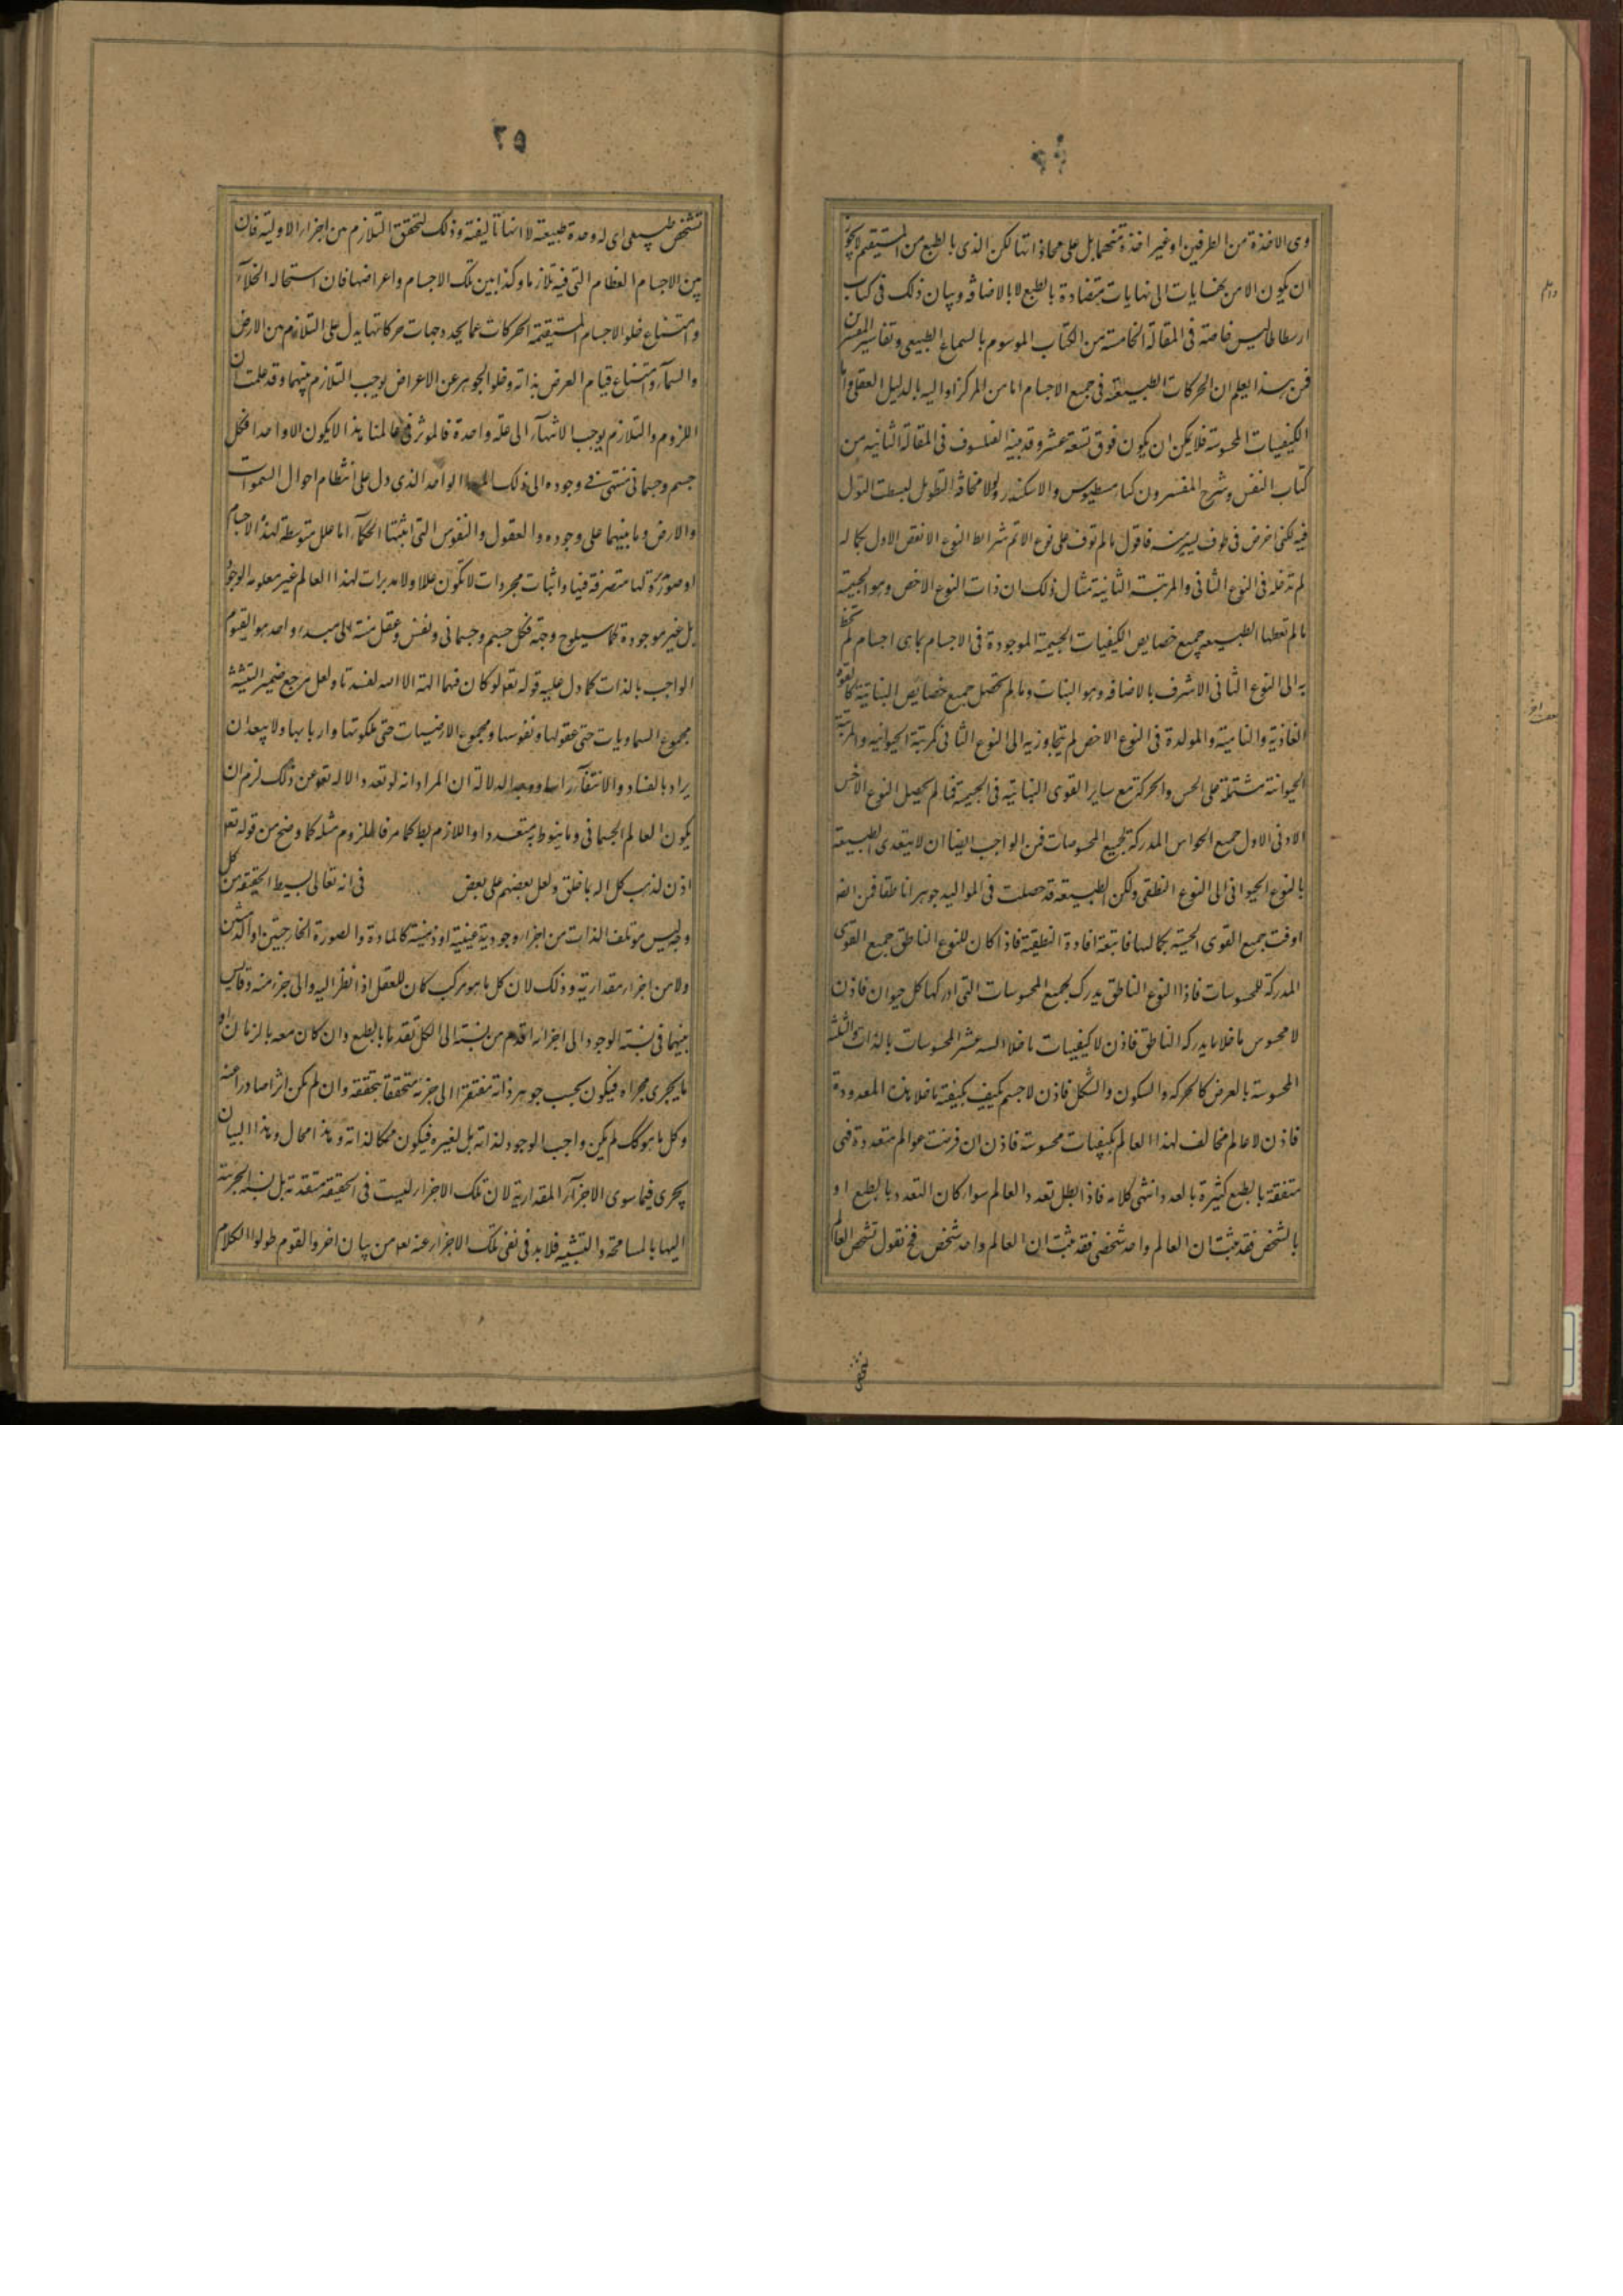 وهى الاخذة من الطرفين او غير اخذة منهما بل على محاذاتها لكن الذى بالطبع من المستقيم لا يجوز
ان يكون الا من نهايات الى نهايات متضادة بالطبع لا بالاضافة وبيان ذلك فى كتاب
ارسطاطاليس خاصة فى المقالة الخامسة من الكتاب الموسوم بالسماع الطبيعى وتفاسير المفسرين
فمن هذا يعلم ان الحركات الطبيعية فى جميع الاجسام اما من المركز او اليه بالدليل العقلى واما
الكيفيات المحسوسة فلا يمكن ان يكون فوق تسعة عشر وقد بينه الفيلسوف فى المقالة الثانية من
كتاب النفس وشرح المفسرون كثامسطيوس والاسكندر ولولا مخافة التطويل لبسطت القول
فيه لكنى اخوض فى طرف يسير منه فاقول ما لم توف على نوع الاتم شرائط النوع الانقص الاول بكماله
لم تدخله فى النوع الثانى والمرتبة الثانية مثال ذلك ان ذات النوع الاخص وهو الجسمية
ما لم تعطها الطبيعة جميع خصايص الكيفيات الجسمية الموجودة فى الاجسام بما هى اجسام لم تخط
به الى النوع الثانى الاشرف بالاضافة وهو النبات وما لم تحصل جميع خصائص النباتية كالقوة
الغاذية والنامية والمولدة فى النوع الاخص لم تتجاوز به الى النوع الثانى كمرتبة الحيوانية والمرتبة
الحيوانية مشتملة على الحس والحركة مع ساير القوى النباتية فى الجسمية فما لم يحصل النوع الاخس
الادنى الاول جميع الحواس المدركة لجميع المحسوسات فمن الواجب ايضا ان لا يتعدى الطبيعة
بالنوع الحيوانى الى النوع النطقى ولكن الطبيعة قد حصلت فى المواليد جوهرا ناطقا فمن الض
اوفت جميع القوى الحسية بكمالها فاتبعته افادة النطقية فاذا كان للنوع الناطق جميع القوى
المدركة للمحسوسات فاذا النوع الناطق يدرك بجميع المحسوسات التى ادركها كل حيوان فاذن
لا محسوس ما خلا ما يدركه الناطق فاذن لا كيفيات ما خلا الستة عشر المحسوسات بالذات والثلثة
المحسوسة بالعرض كالحركة والسكون والشكل فاذن لا جسم يكيف بكيفية ما خلا هذه المعدودة
فاذن لا عالم مخالف لهذا العالم بكيفيات محسوسة فاذن ان فرضت عوالم متعددة فهى
متفقة بالطبع كثيرة بالعدد انتهى كلامه فاذا بطل تعدد العالم سواء كان التعدد بالطبع او
بالشخص فقد ثبت ان العالم واحد شخصى فقد ثبت ان العالم واحد شخص فح نقول تشخص العالم
٥٢
تشخص طبيعى اى له وحدة طبيعية لا انها تاليفية وذلك لتحقق التلازم بين اجزاء الاولية فان
بين الاجسام العظام التى فيه تلازما وكذا بين تلك الاجسام واعراضها فان استحاله الخلآء
وامتناع خلو الاجسام المستقيمة الحركات عما يحدد جهات حركاتها يدل على التلازم بين الارض
والسمآء وامتناع قيام العرض بذاته وخلو الجوهر عن الاعراض يوجب التلازم بينهما وقد علمت ان
اللزوم والتلازم يوجب الانتهآء الى علة واحدة فالموثر فى عالمنا هذا لا يكون الا واحدا فكل
جسم وجسمانى منتهى فى وجوده الى ذلك المبدا الواحد الذى دل على انتظام احوال السموات
والارض وما بينهما على وجوده والعقول والنفوس التى اثبتها الحكمآء اما علل متوسطة لهذه الاجسام
او صورة لها متصرفة فيها واثبات مجردات لا تكون عللا ولا مدبرات لهذا العالم غير معلومة الوجود
بل غير موجودة كما سيلوح وجهه فكل جسم وجسمانى ونفس وعقل منته الى مبدء واحد هو القيوم
الواجب بالذات كما دل عليه قوله تعو لو كان فيهما الهة الا الله لفسدتا ولعل مرجع ضمير التثنية
مجموع السماويات حتى عقولها ونفوسها ومجموع الارضيات حتى ملكوتها واربابها ولا يبعد ان
يراد بالفساد والانتفآء راسا ووجه الدلالة ان المراد انه لو تعدد الاله تعو عن ذلك لزم ان
يكون العالم الجسمانى وما ينوط به متعددا واللازم بط كما مر فالملزوم مثله كما وضح من قوله تعو
اذن لذهب كل اله بما خلق ولعلى بعضهم على بعض فى انه تعالى بسيط الحقيقة من كل
وجه ليس مؤتلف الذات من اجزاء وجودية عينية او ذهنية كالمادة والصورة الخارجيتين او الذهنيتين
ولا من اجزاء مقدارية وذلك لان كل ما هو مركب كان للعقل اذا نظر اليه والى جزء منه وقايس
بينهما فى نسبة الوجود الى اجزائه اقدم من نسبته الى الكل تقدما بالطبع وان كان معه بالزمان او
ما يجرى مجراه فيكون بحسب جوهر ذاته مفتقرا الى جزئه متحققا بتحققه وان لم يكن اثرا صادرا عنه
وكل ما هو كك لم يكن واجب الوجود لذاته بل لغيره فيكون ممكنا لذاته وهذا محال وهذا البيان
يجرى فيما سوى الاجزآء المقدارية لان تلك الاجزاء ليست فى الحقيقة متقدمة بل نسبة الجزئية
اليها بالمسامحة والتشبيه فلا بد فى نفى تلك الاجزاء عنه تعو من بيان اخر والقوم طولوا الكلام